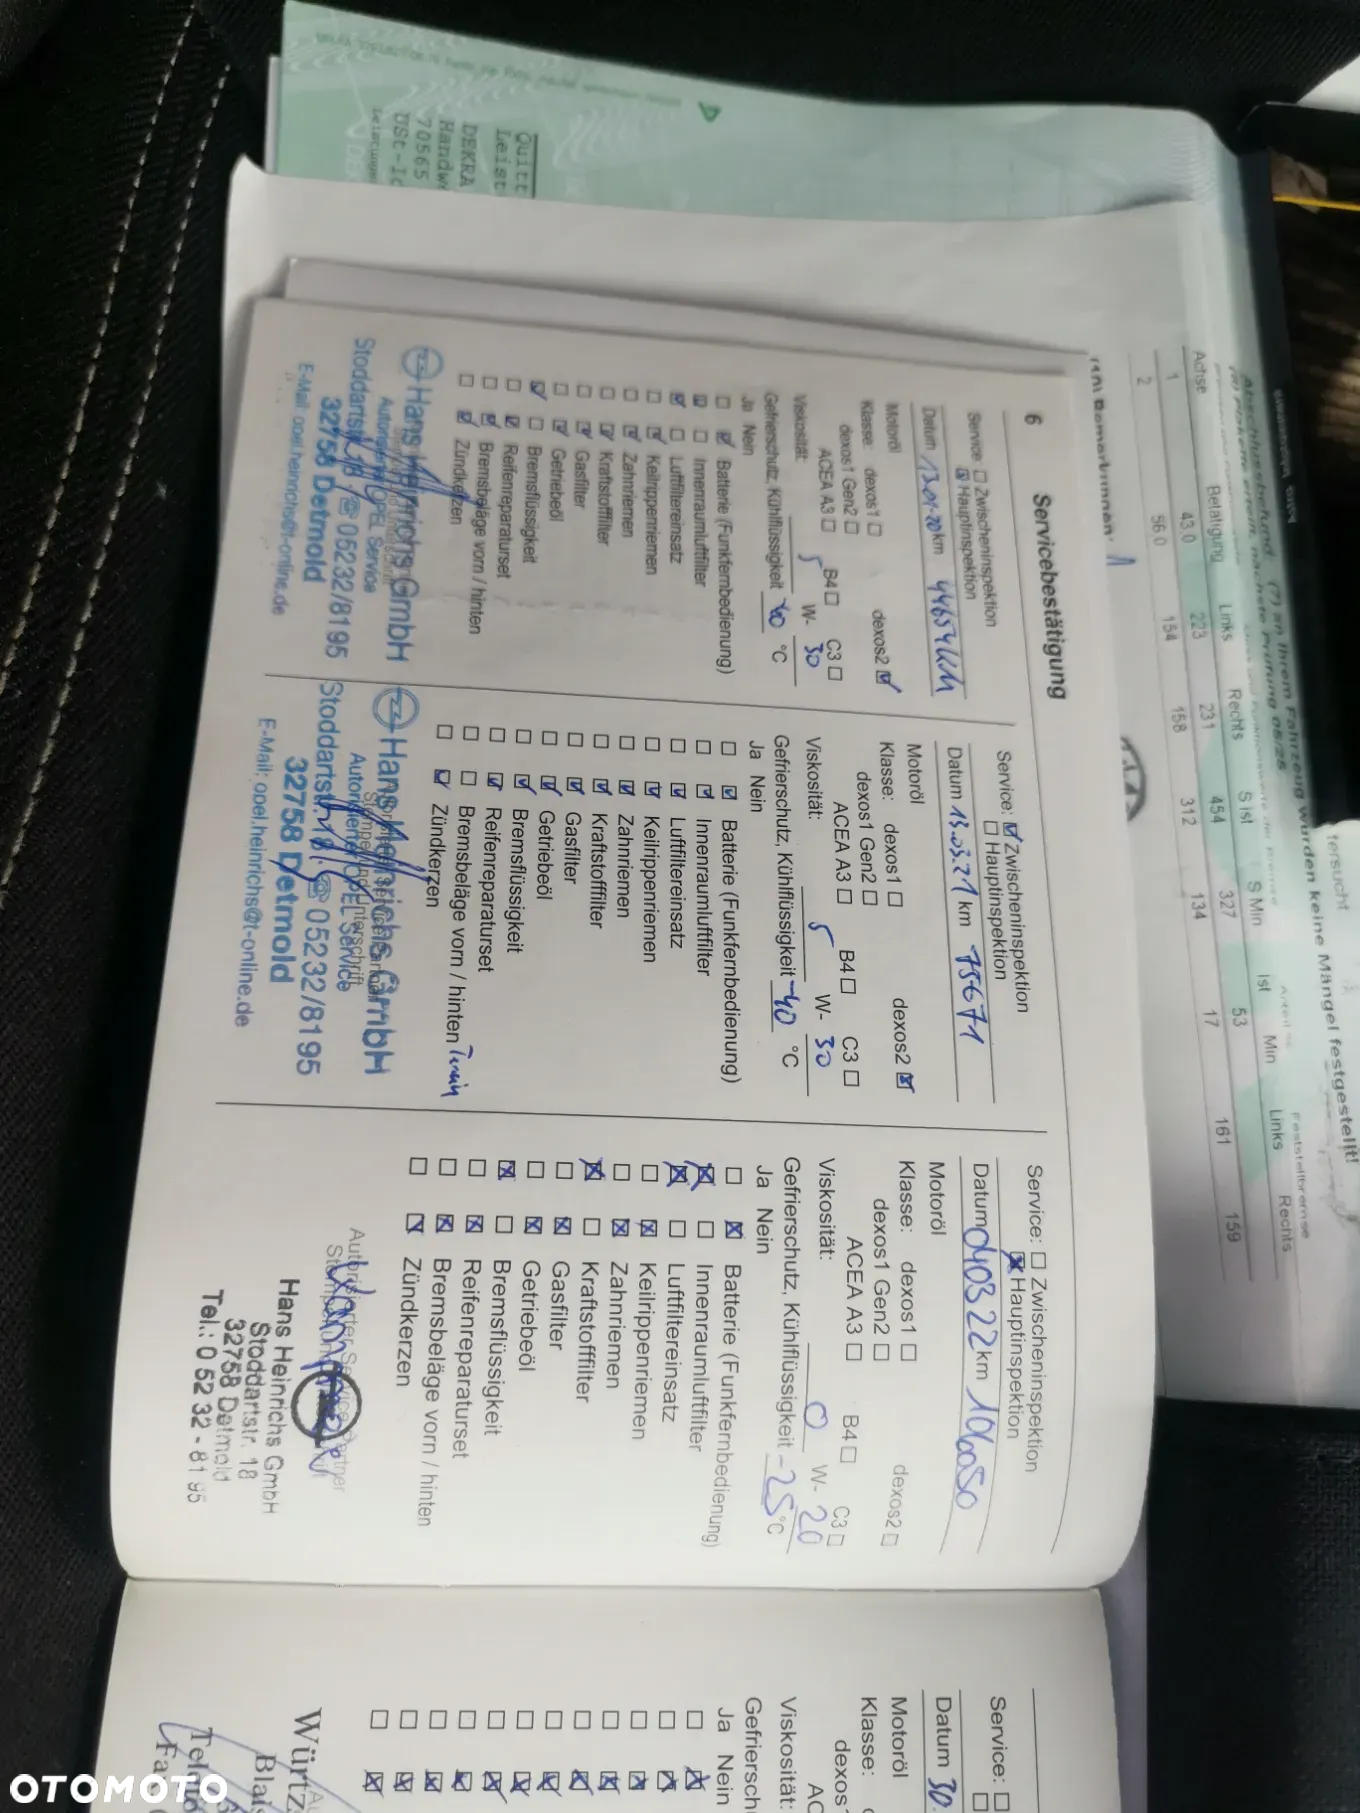 6
Servicebestätigung
Service: ☐ Zwischeninspektion
☒ Hauptinspektion
Datum 13.01.20 km 44654 km
Motoröl
Klasse: dexos1 ☐ dexos2 ☑
dexos1 Gen2 ☐
ACEA A3 ☐ B4 ☐ C3 ☐
Viskosität: 5 W- 30
Gefrierschutz, Kühlflüssigkeit -40 °C
Ja Nein
☐ ☑ Batterie (Funkfernbedienung)
☑ ☐ Innenraumluftfilter
☑ ☐ Luftfiltereinsatz
☐ ☑ Keilrippenriemen
☐ ☑ Zahnriemen
☐ ☑ Kraftstofffilter
☐ ☑ Gasfilter
☐ ☑ Getriebeöl
☑ ☐ Bremsflüssigkeit
☐ ☑ Reifenreparaturset
☐ ☑ Bremsbeläge vorn / hinten
☐ ☑ Zündkerzen
Hans Heinrichs GmbH
Autorisierter OPEL Service
Stoddartstr. 18 ☎ 05232/8195
32758 Detmold
E-Mail: opel.heinrichs@t-online.de
Service: ☑ Zwischeninspektion
☐ Hauptinspektion
Datum 13.03.21 km 75671
Motoröl
Klasse: dexos1 ☐ dexos2 ☒
dexos1 Gen2 ☐
ACEA A3 ☐ B4 ☐ C3 ☐
Viskosität: 5 W- 30
Gefrierschutz, Kühlflüssigkeit -40 °C
Ja Nein
☐ ☑ Batterie (Funkfernbedienung)
☐ ☑ Innenraumluftfilter
☐ ☑ Luftfiltereinsatz
☐ ☑ Keilrippenriemen
☐ ☑ Zahnriemen
☐ ☑ Kraftstofffilter
☐ ☑ Gasfilter
☐ ☑ Getriebeöl
☐ ☑ Bremsflüssigkeit
☐ ☑ Reifenreparaturset
☐ ☐ Bremsbeläge vorn / hinten
☐ ☑ Zündkerzen
Hans Heinrichs GmbH
Autorisierter OPEL Service
Stoddartstr. 18 ☎ 05232/8195
32758 Detmold
E-Mail: opel.heinrichs@t-online.de
Service: ☐ Zwischeninspektion
☒ Hauptinspektion
Datum 040322 km 106050
Motoröl
Klasse: dexos1 ☐ dexos2 ☐
dexos1 Gen2 ☐
ACEA A3 ☐ B4 ☐ C3 ☐
Viskosität: 0 W- 20
Gefrierschutz, Kühlflüssigkeit -25 °C
Ja Nein
☐ ☒ Batterie (Funkfernbedienung)
☒ ☐ Innenraumluftfilter
☒ ☐ Luftfiltereinsatz
☐ ☒ Keilrippenriemen
☐ ☒ Zahnriemen
☒ ☐ Kraftstofffilter
☐ ☒ Gasfilter
☐ ☒ Getriebeöl
☒ ☐ Bremsflüssigkeit
☐ ☒ Reifenreparaturset
☐ ☒ Bremsbeläge vorn / hinten
☐ ☒ Zündkerzen
Autorisierter Service Partner
Hans Heinrichs GmbH
Stoddartstr. 18
32758 Detmold
Tel.: 0 52 32 - 81 95
Service: ☐
☐
Datum 30.
Motoröl
Klasse:
dexos1
Viskosität:
Gefriersch
Ja Nein
Würtz
Blais
DEKRA
70565
wurden keine Mängel festgestellt!
Achse Betätigung Links Rechts S Ist S Min Ist Min Links Rechts
1 43.0 223 231 454 327 53 161 159
2 56.0 154 158 312 134 17
OTOMOTO